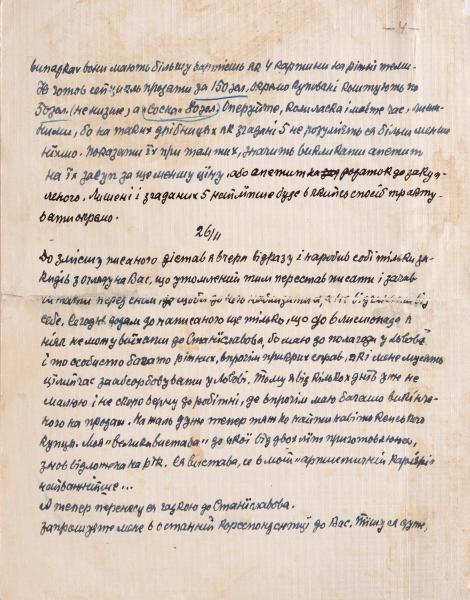 - 4 -
випадках вони мають більшу вартість як 4 картини на різні теми.
Я готов сей цикль продати за 150 зол. окремо куповані коштують по
50 зол. (не низше) а "Сосна" 80 зол. Оперуйте, коли ласка і маєте час, лише
ними, бо на таких дрібницях як згадані 5 не розуміється більш менше
ніхто. Показати їх при тамтих, значить викликати апетит
на їх закуп за ще меншу ціну, або апетит на додаток до закуп
леного. Лишені і згаданих 5 найліпше буде в якийсь спосіб тракту-
вати окремо.
26/II
До змісту писаного дістав я вчера відразу і наробив собі тільки за-
кидів з огляду на Вас, що утомлений тим перестав писати і зачав
читати перед сном, де щоби до чого
себе. Сьогодні додам до написаного ще тільки, що до 6 листопада я
ніяк не можу виїхати до Станіславова, бо маю до полагоди у Львові
і то особисто багато різних, впрочім прикрих справ, які мене мусять
цілий час заабсорбовувати у Львові. Тому я від кількох днів уже не
малюю і не скоро верну до робітні, де впрочім маю багато викінче-
ного на продаж. На жаль дуже тепер тяжко найти навіть конечного
купця. Моя "велика вистава" до якої від двох літ приготовляюсь,
знов відложена на рік. Ся вистава, се в моїй "артистичній карієрі"
найважнійше...
А тепер перенесуся гадкою до Станіславова.
Запрошуєте мене в останній кореспонденції до Вас. Тішуся дуже,